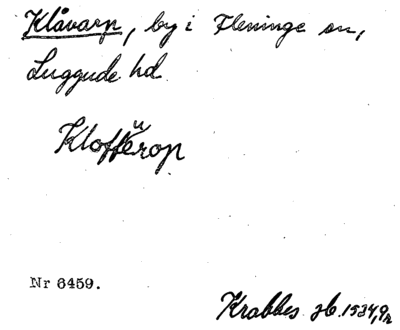 Klåvarp, by i Fleninge sn,
Luggude hd
Klofferop
Nr 6459.
Krabbes jb. 1534,9r